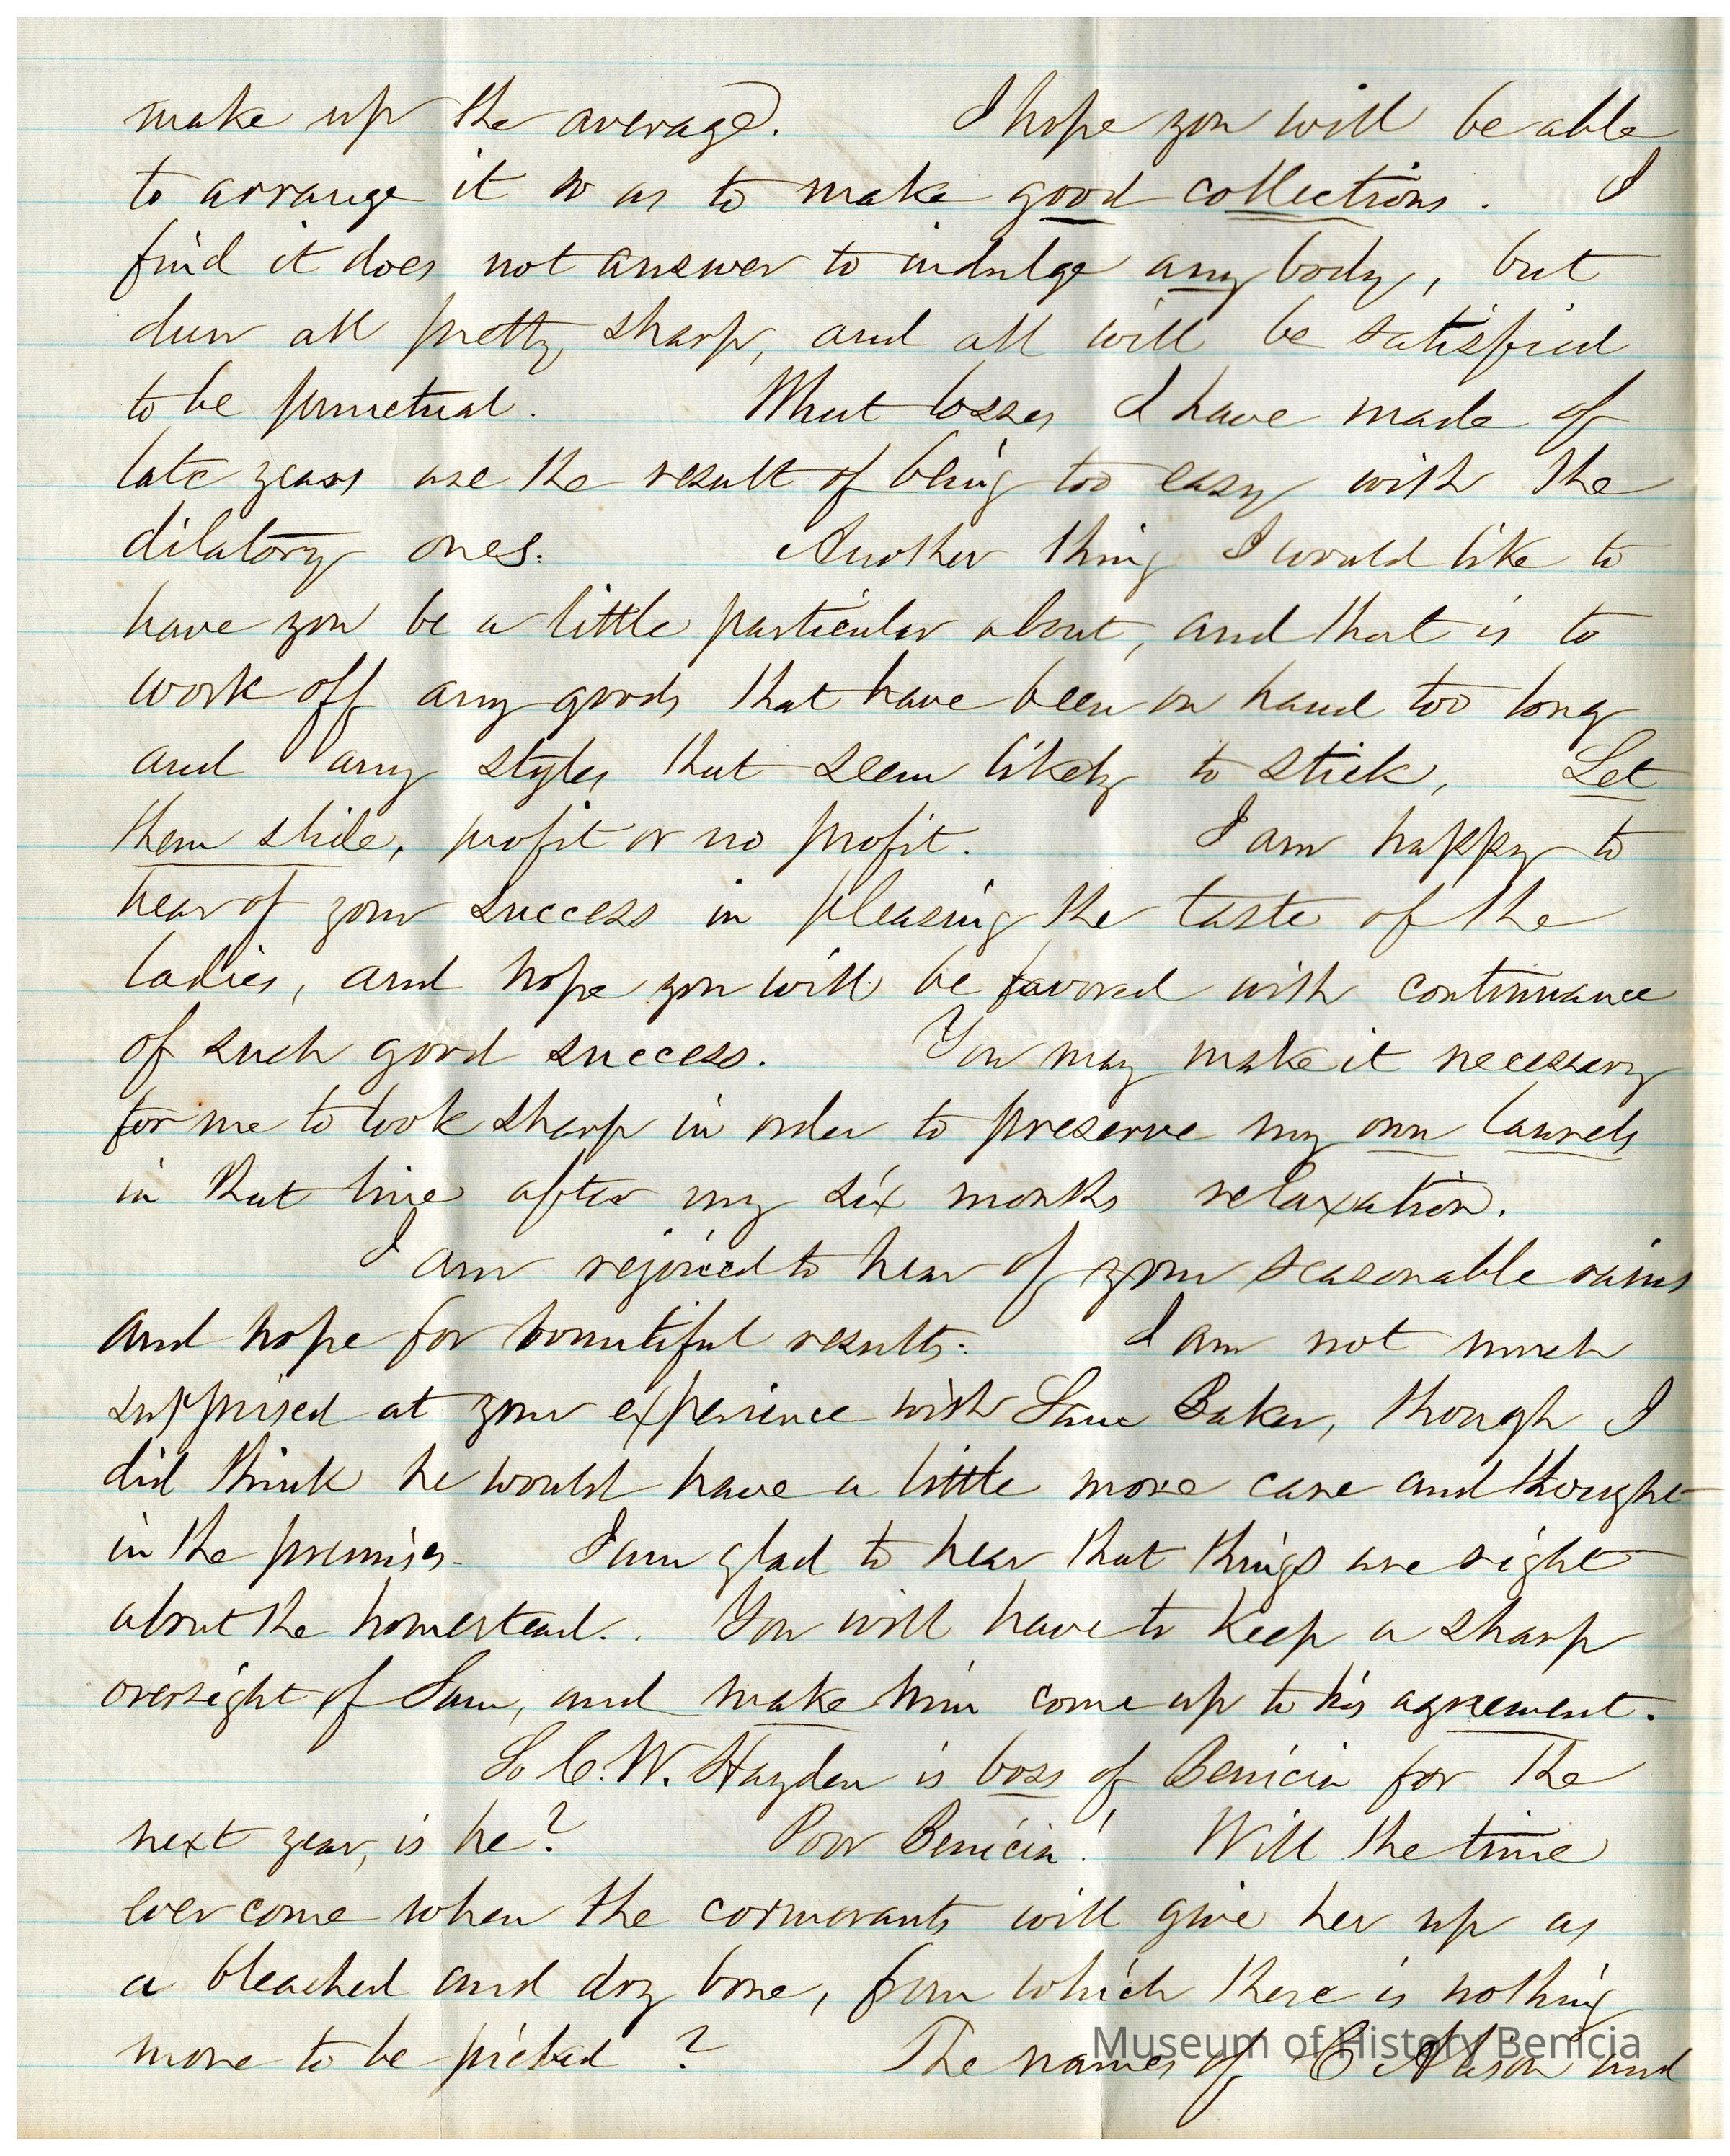 make up the average). I hope you will be able
to arrange it so as to make good collections. I
find it does not answer to indulge any body, but
dun all pretty sharp, and all will be satisfied
to be punctual. What losses I have made of
late years are the result of being too easy with the
dilatory ones. Another thing I would like to
have you be a little particular about, and that is to
work off any goods that have been on hand too long
and any styles that seem likely to stick, Let
them slide, profit or no profit. I am happy to
hear of your success in pleasing the taste of the
ladies, and hope you will be favored with continuance
of such good success. You may make it necessary
for me to look sharp in order to preserve my own laurels
in that line after my six months relaxation.
I am rejoiced to hear of your seasonable rains
and hope for bountiful results. I am not much
surprised at your experience with Sam Baker, though I
did think he would have a little more care and thought
in the premises. I am glad to hear that things are right
about the homestead. You will have to keep a sharp
oversight of Sam, and make him come up to his agreement.
So C. W. Hayden is boss of Benicia for the
next year, is he? Poor Benicia! Will the time
ever come when the cormorants will give her up as
a bleached and dry bone, from which there is nothing
more to be picked? The names of C and
Museum of History Benicia